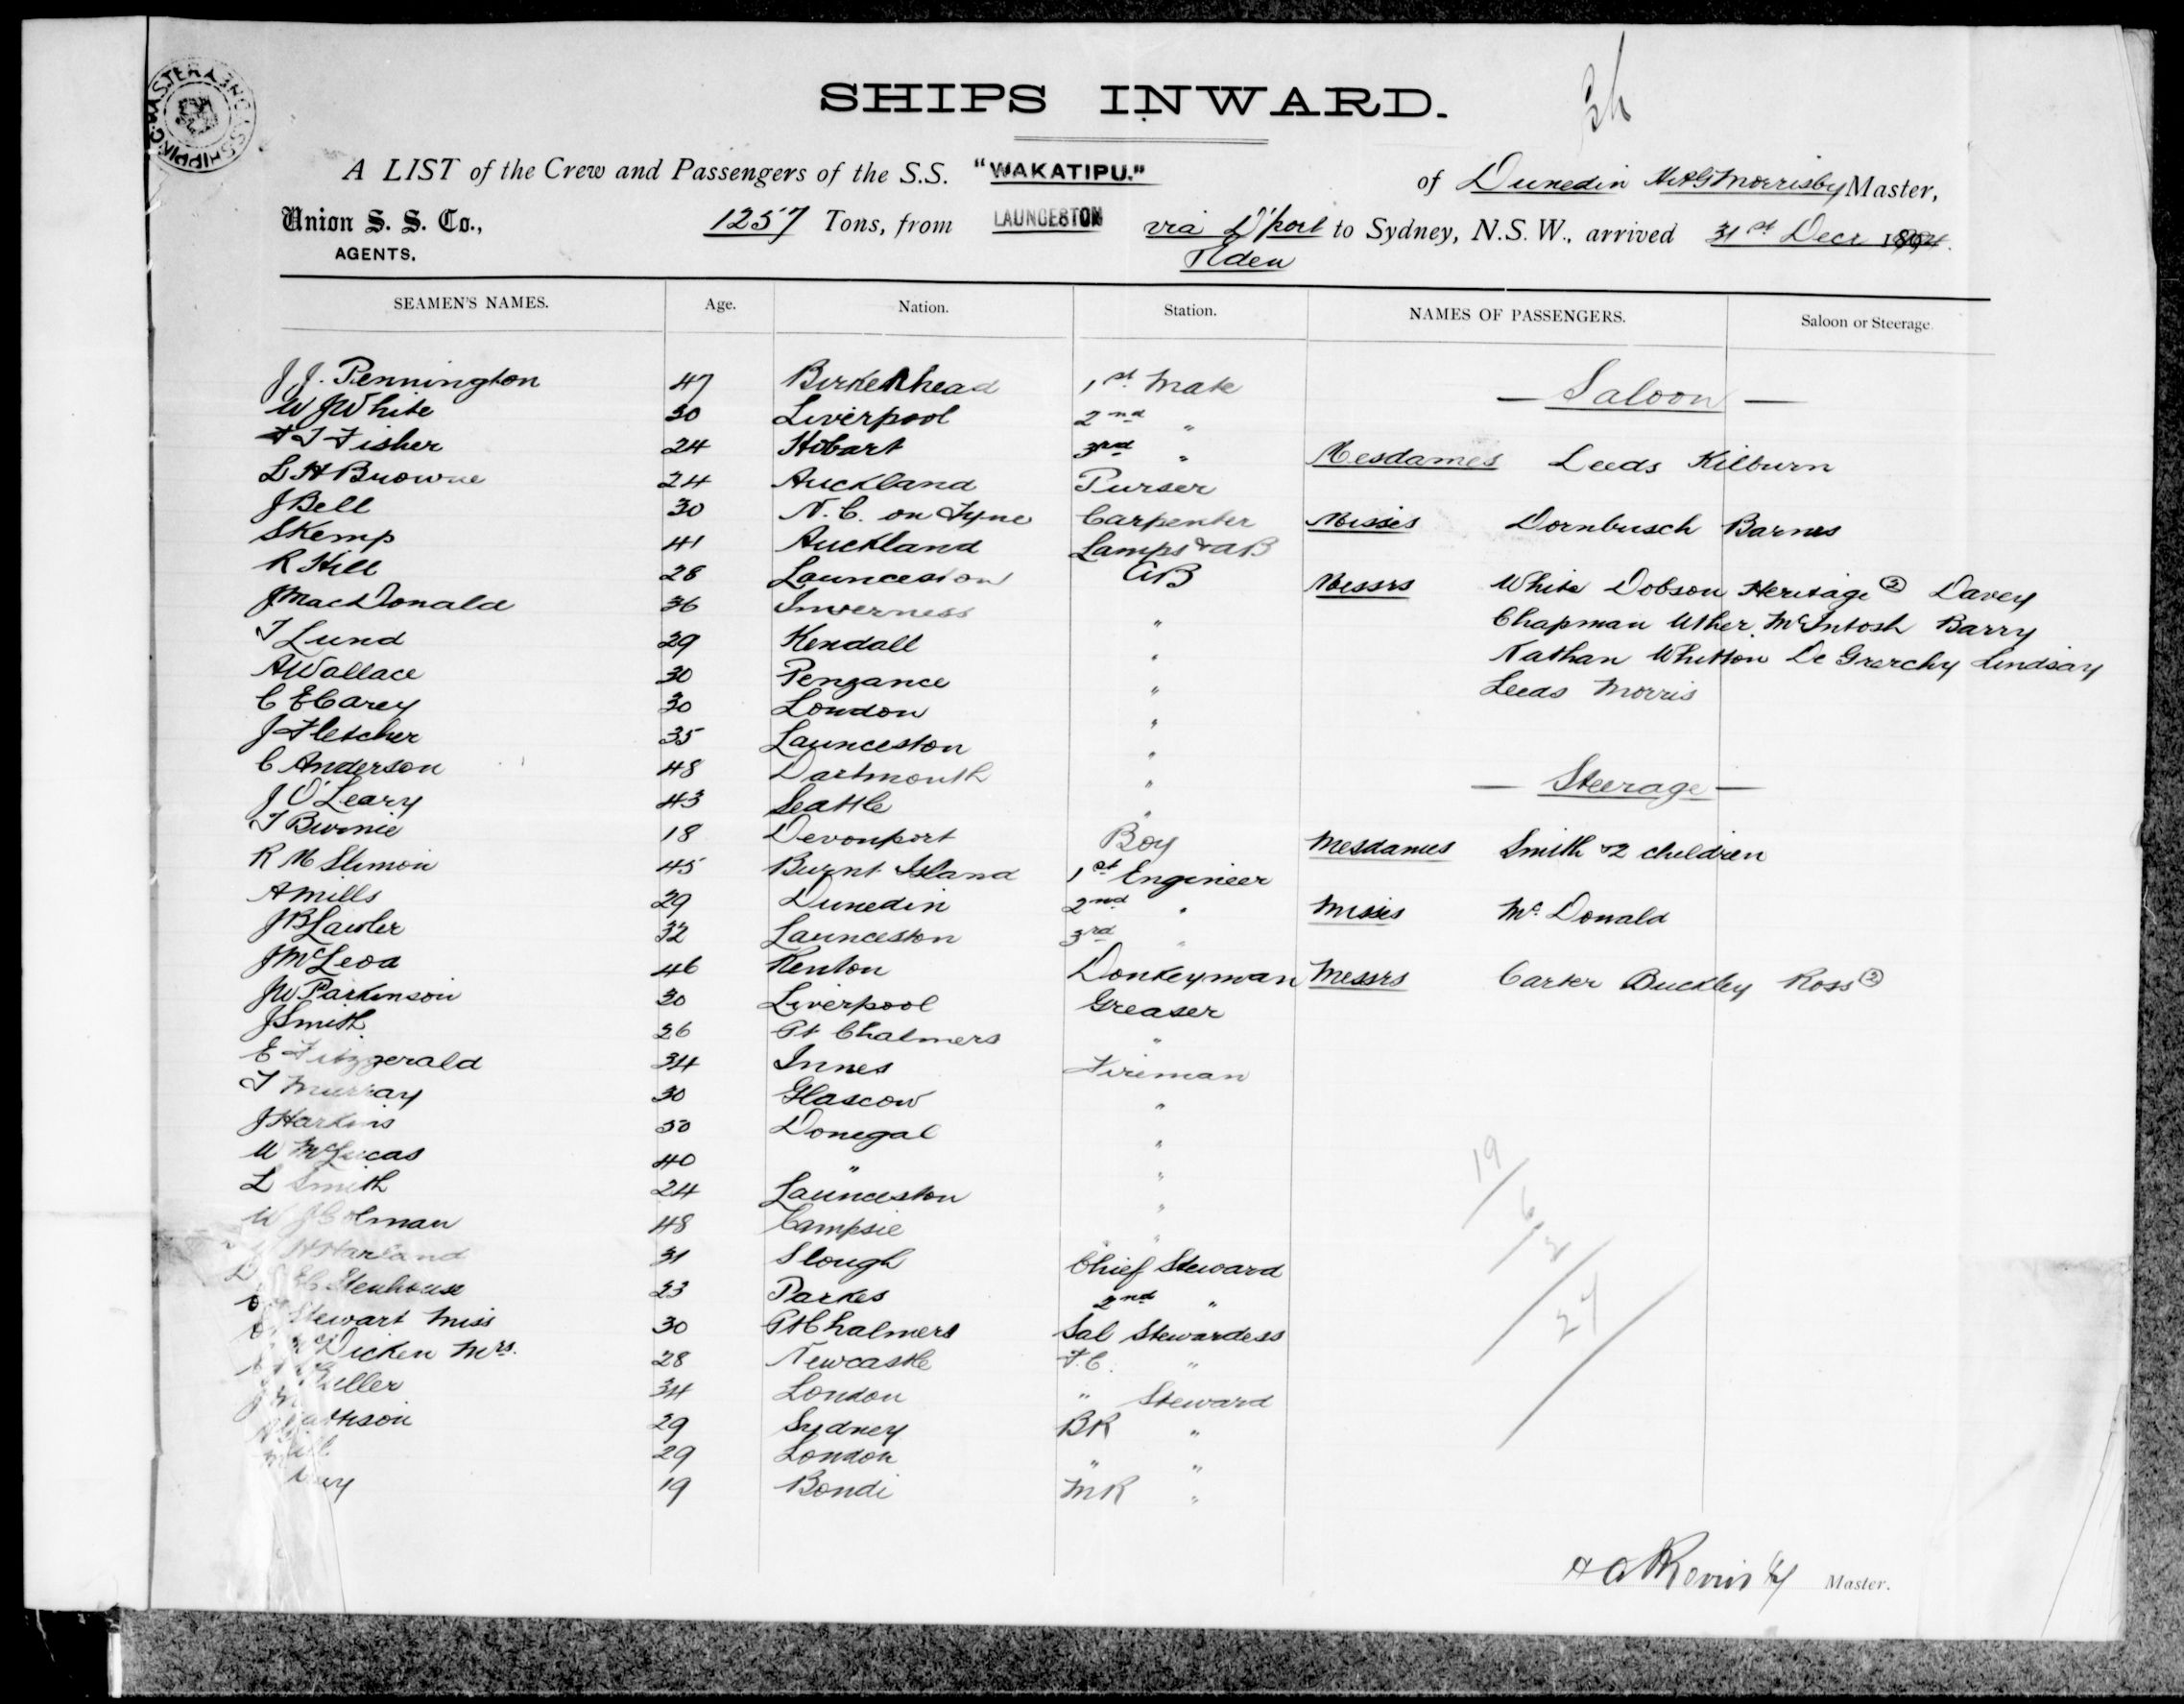 SHIPS INWARD.
A LIST of the Crew and Passengers of the S.S. "WAKATIPU." of Dunedin Morrisby Master,
Union S. S. Co., 1257 Tons, from LAUNCESTON via D'port to Sydney, N.S.W., arrived 31st Decr
AGENTS.
SEAMEN'S NAMES. Age. Nation. Station. NAMES OF PASSENGERS. Saloon or Steerage.
J J. Pennington 47 Birkenhead 1st Mate
— Saloon —
W J White 30 Liverpool 2nd "
F T Fisher 24 Hobart 3rd "
Mesdames Leeds Kilburn
L H Browne 24 Auckland Purser
J Bell 30 N. C. on Tyne Carpenter
Misses Dornbusch Barnes
S Kemp 41 Auckland Lamps & AB
R Hill 28 Launceston AB
Messrs White Dobson Heritage (2) Davey
J MacDonald 36 Inverness "
Chapman Uther McIntosh Barry
T Lund 29 Kendall "
Nathan Whitton De Grarchy Lindsay
A Wallace 30 Penzance "
Leeds Morris
C E Carey 30 London "
J Fletcher 35 Launceston "
C Anderson 48 Dartmouth "
— Steerage —
J O'Leary 43 Seattle "
T Burnie 18 Devonport Boy
Mesdames Smith & 2 children
R M Slimon 45 Burnt Island 1st Engineer
A Mills 29 Dunedin 2nd "
Misses Mc Donald
J B Lawler 32 Launceston 3rd "
J McLeod 46 Renton Donkeyman
Messrs Carter Buckley Ross (2)
J W Parkinson 30 Liverpool Greaser
J Smith 26 Pt Chalmers "
E Fitzgerald 34 Innes Fireman
T Murray 30 Glascow "
J Harkins 50 Donegal "
W McLucas 40 " "
L Smith 24 Launceston "
W J Colman 48 Campsie "
H Harland 31 Slough Chief Steward
Stenhouse 23 Parkes 2nd "
Stewart Miss 30 Pt Chalmers Sal Stewardess
McDicken Mrs. 28 Newcastle F.C. "
34 London " Steward
29 Sydney BR "
29 London " "
19 Bondi MR "
19
6
2
27
Master.